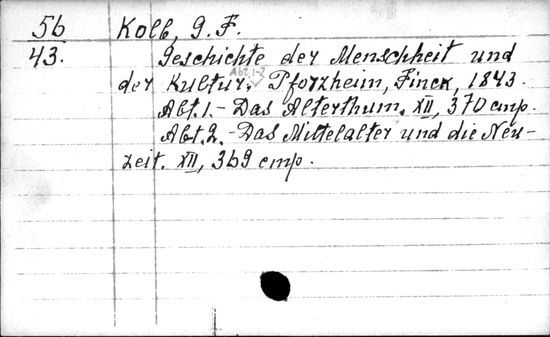 56 Kolb, G. F.
43. Geschichte der Menschheit und
Abt. 1-2
der Kultur. Pforzheim, Finck, 1843.
Abt. 1. - Das Alterthum. XII, 370 стр.
Abt. 2. - Das Mittelalter und die Neu-
zeit. XII, 369 стр.